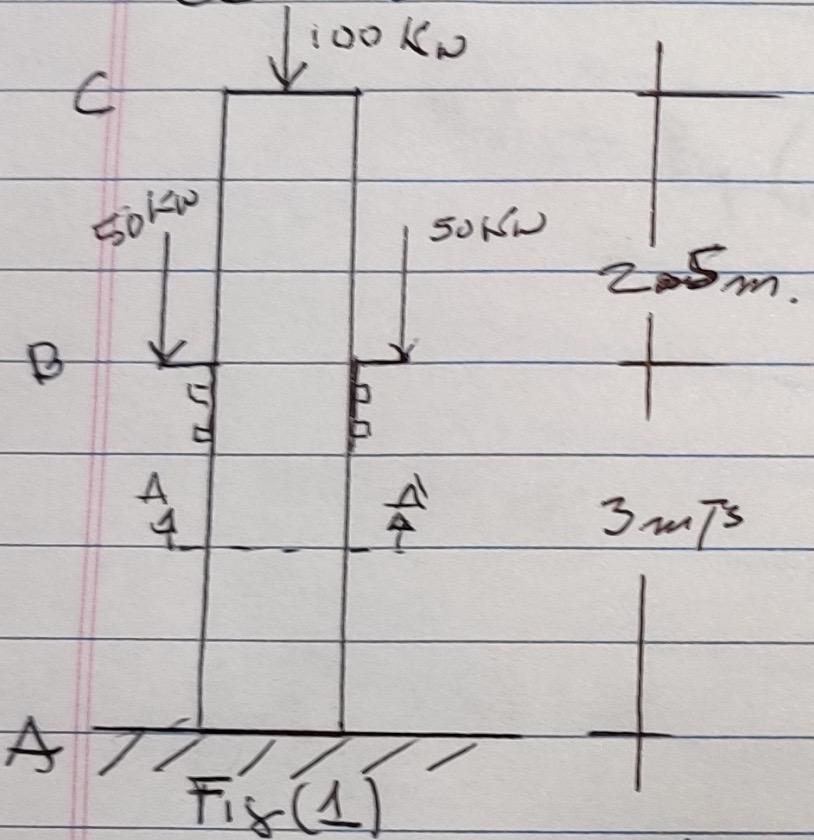 100 KN
C
50KN
50KN
2.5m.
B
A
A'
3mTs
A
Fig(1)